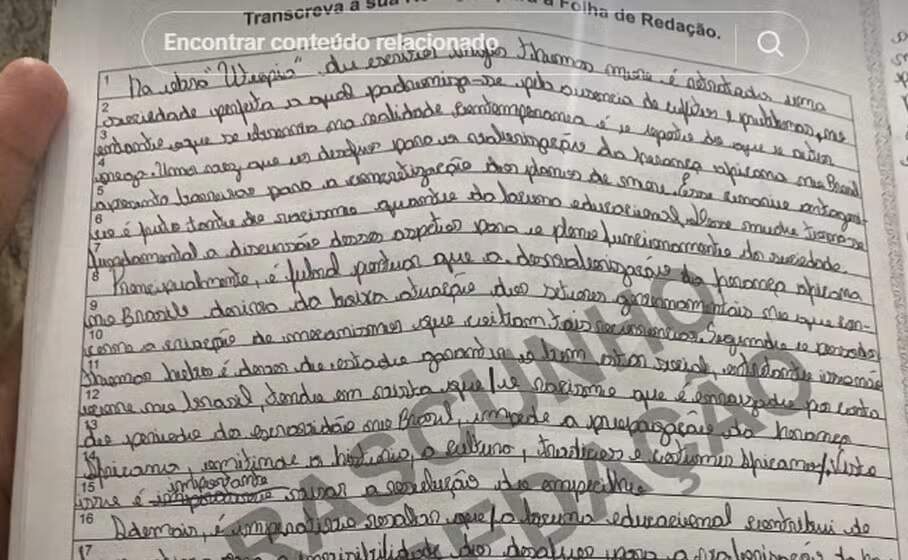 Transcreva a sua Folha de Redação.
Encontrar conteúdo relacionado
1 Na obra "Utopia" du escritor inglês Thomas more é retratada uma
2 sociedade perfeita a qual padroniza-se pela ausencia de conflitos e problemas, no
3 entanto o que se observa na realidade contemporanea é o oposto do que o autor
4 prega. Uma vez que os desafios para a valorização da herança africana no Brasil
5 apresenta barreiras para a concretização dos planos de more. Esse cenario antagoni-
6 co é fruto tanto do racismo quanto da lacuna educacional. Desse modo torna-se
7 fundamental a discussão desses aspetos para o pleno funcionamento da sociedade.
8 Primeiramente, é fulcral pontuar que a desvalorização da herança africana
9 no Brasil deriva da baixa atuação dos setores governamentais no que con-
10 cerne a criação de mecanismos que coibam tais recorrencias. Segundo o pensador
11 thomas hobbes é dever do estado garantir o bem estar social, entretanto isso não
12 ocorre no Brasil, tendo em vista que o racismo que é enraizado por conta
13 do periodo da escravidão no Brasil, impede a propagação da herança
14 Africana, a historia, a cultura, tradições e costumes Africanos. Visto
15 isso é importante a resolução do empecilho
16 Ademais, é imperativo resaltar que a lacuna educacional contribui de
17 para a dos desafios para a valorização da
RASCUNHO
REDAÇÃO